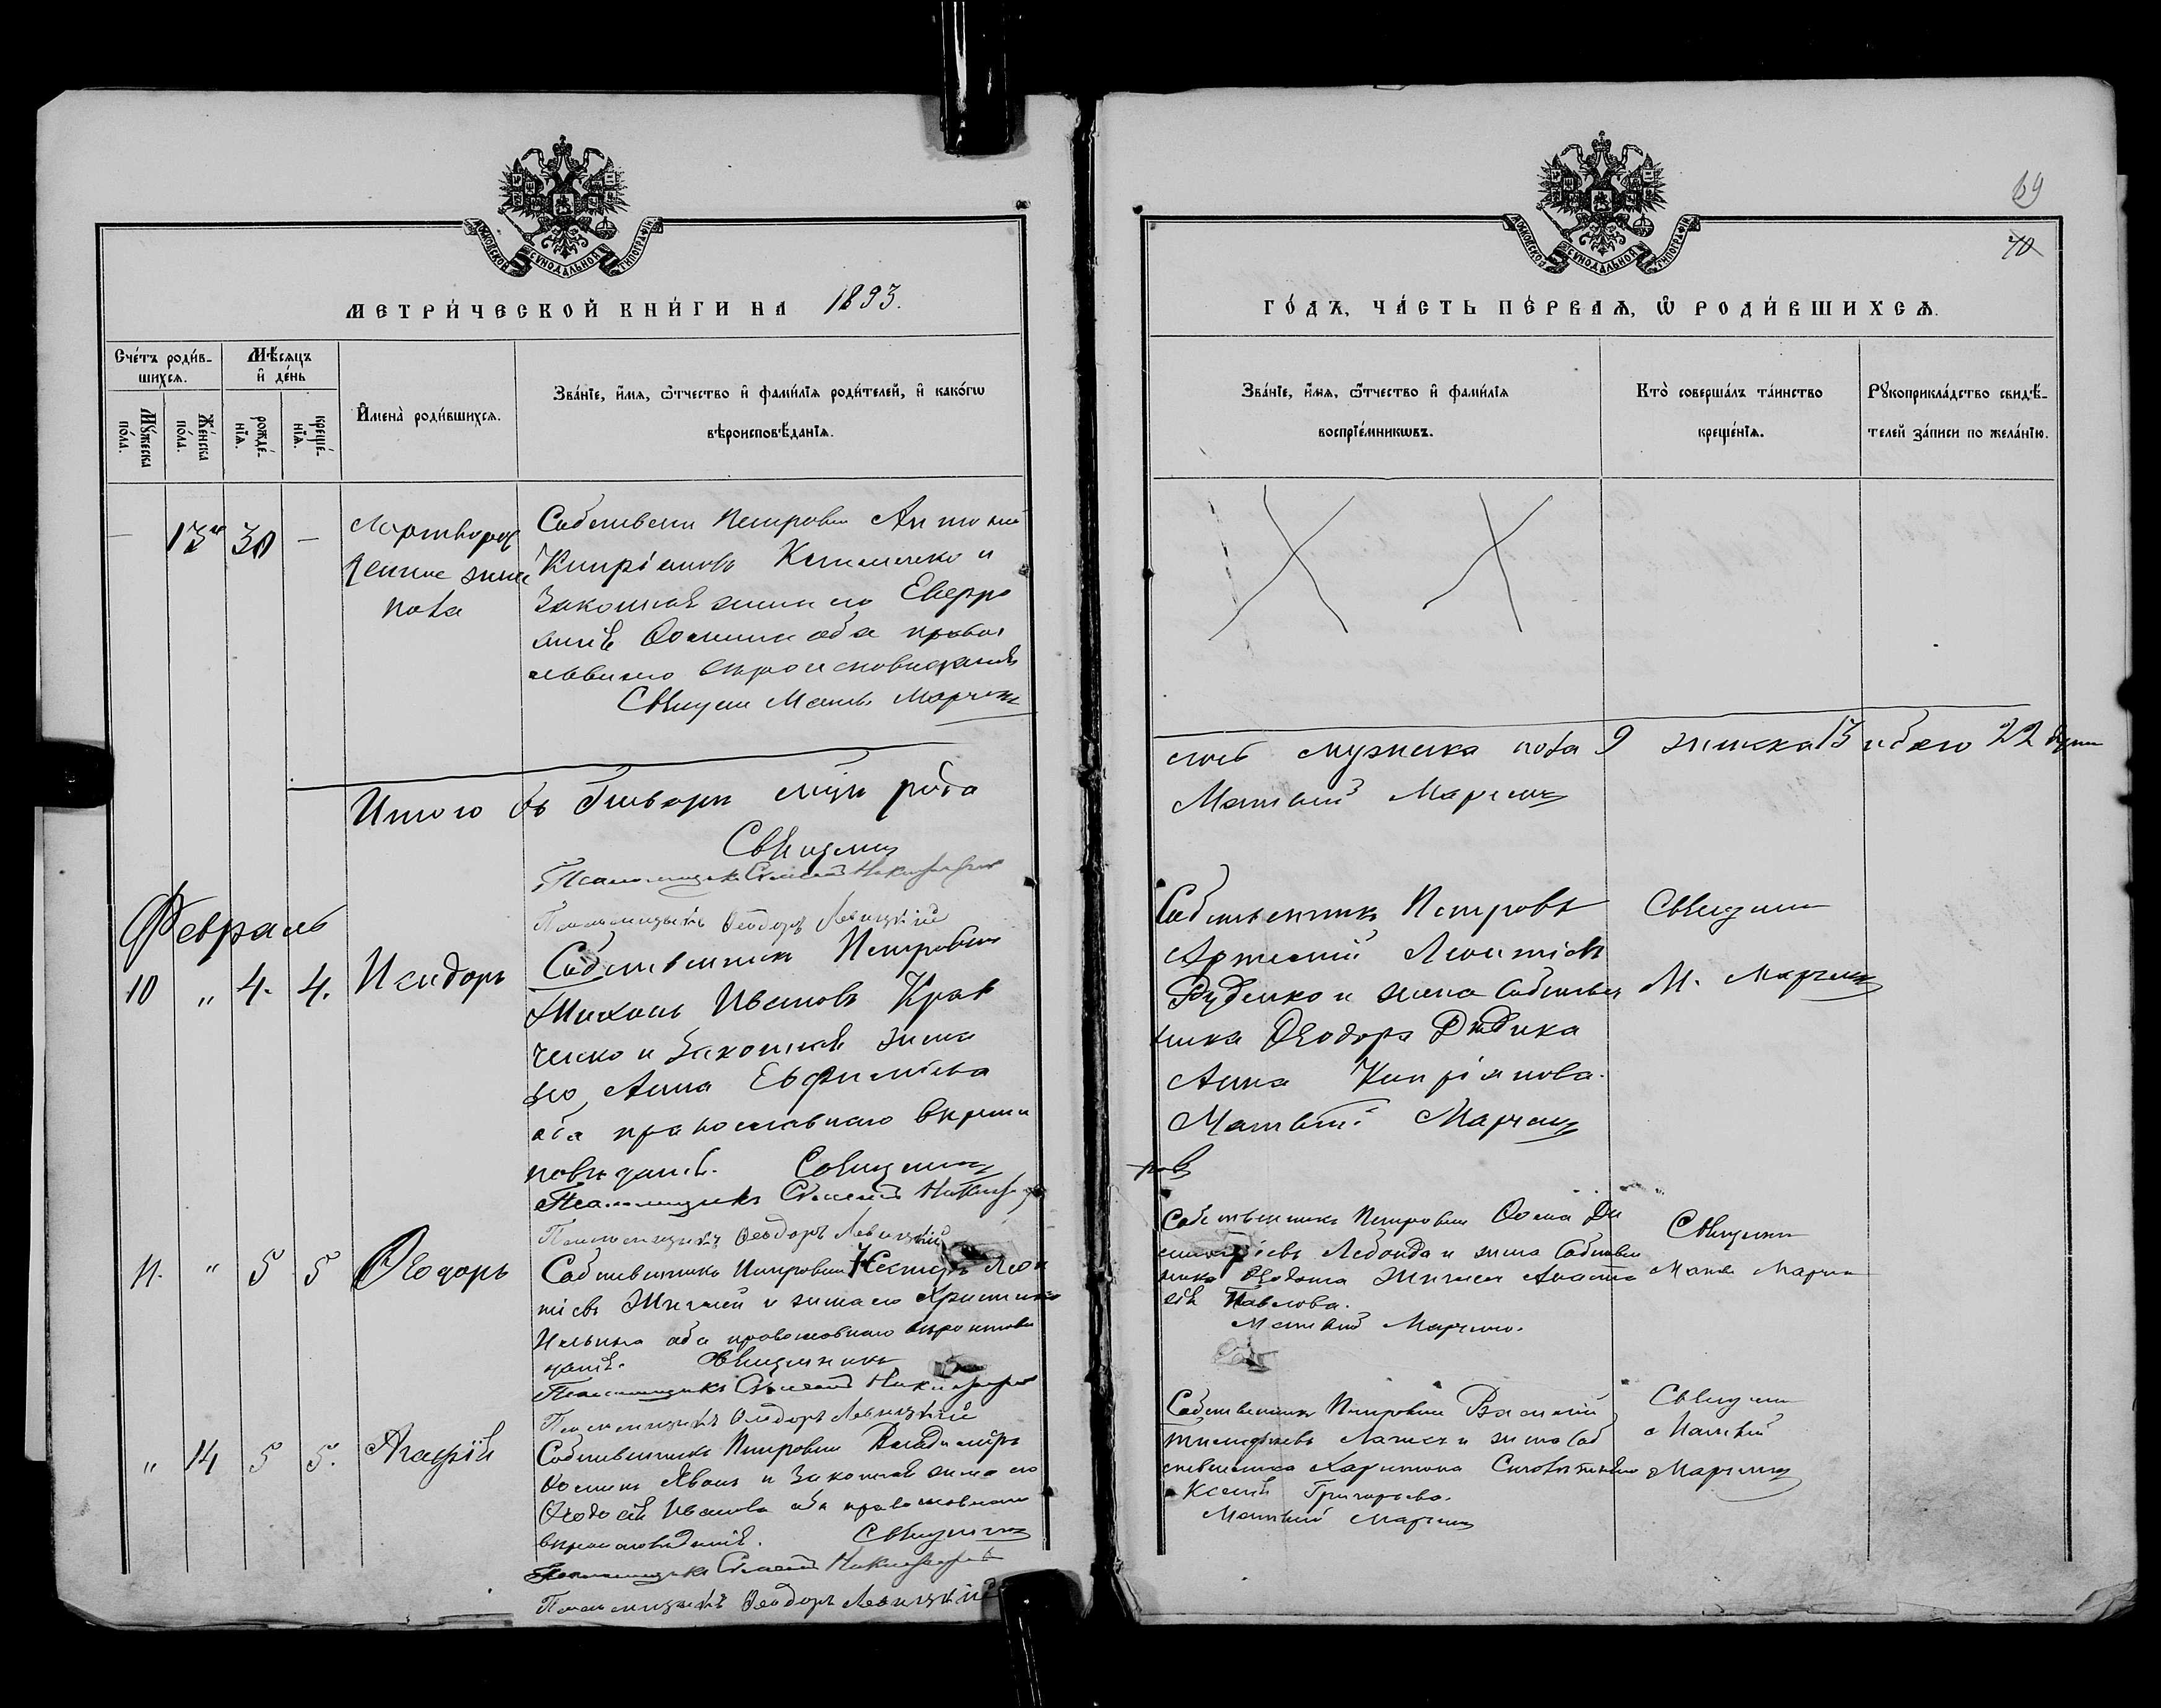 МОСКОВСКОЙ СѴНОДАЛЬНОЙ ТИПОГРАФІИ
МЕТРИ́ЧЕСКОЙ КНИ́ГИ НА 1893.
Сче́тъ роди́в-
шихсѧ.
Мѣ́сѧцъ
и҆ де́нь
Мꙋ́жеска
по́ла.
Же́нска
по́ла.
рожде́-
нїѧ.
креще́-
нїѧ.
И҆мена̀ роди́вшихсѧ.
Зва́нїе, и҆́мѧ, ѻ҆́тчество и҆ фами́лїѧ роди́телей, и҆ како́гѡ
вѣроисповѣ́данїѧ.
— 13 30 —
Мертворож
денное жен
пола
Собственн Петровки Антоній
Кипріановъ и
Законная жена его Евфро
синія Фомина оба право
славнаго вѣроисповѣданія
Священ Матв Марчен
Итого въ Январѣ мцѣ роди
Священ
Псаломщикъ Никифоровъ
Псаломщикъ Ѳеодоръ Левицкій
Февраль
10 " 4. 4. Исидоръ
Собственникъ Петровки
Михаилъ Ивановъ Крав
ченко и Законная жена
его Анна Евфиміева
оба православнаго вѣроис
повѣданія. Священ
Псаломщикъ Никифоровъ
Псаломщикъ Ѳеодоръ Левицкій
11. " 5 5 Ѳеодоръ
Собственникъ Петровки Несторъ Леон
тіевъ и жена его Христина
Ильина оба православнаго вѣроисповѣ
данія. Священникъ
Псаломщикъ Никифоровъ
Псаломщикъ Ѳеодоръ Левицкій
" 14 5 5. Агафія
Собственникъ Петровки Владиміръ
Фоминъ и Законная жена его
Ѳеодосія Иванова оба православнаго
вѣроисповѣданія. Священ
Псаломщикъ Никифоровъ
Псаломщикъ Ѳеодоръ Левицкій
69
70
МОСКОВСКОЙ СѴНОДАЛЬНОЙ ТИПОГРАФІИ
ГО́ДЪ, ЧА́СТЬ ПЕ́РВАѦ, Ѽ РОДИ́ВШИХСѦ.
Зва́нїе, и҆́мѧ, ѻ҆́тчество и҆ фами́лїѧ
воспрїе́мникѡвъ.
Кто̀ соверша́лъ та́инство
креще́нїѧ.
Рꙋкоприкла́дство свидѣ́-
телей за́писи по жела́нїю.
лось мужеска пола 9 женска 13 обоего 22 души
Матвій Марченко
Собственникъ Петровки
Артемій Леонтіевъ
Руденко и жена Собствен
ника Ѳеодора Дидика
Анна Кипріанова.
Матвій Марченко
Священ
М. Марченко
Собственникъ Петровки Фома Ди
Лебонда и жена Собствен
ника Анаста
сія Павлова.
Матвій Марченко.
Священ
Матв Марчен
Собственникъ Петровки Василій
и жена Соб
ственника Харитона
Ксенія Григорьева.
Матвій Марченко
Священ
Матвій
Марченко